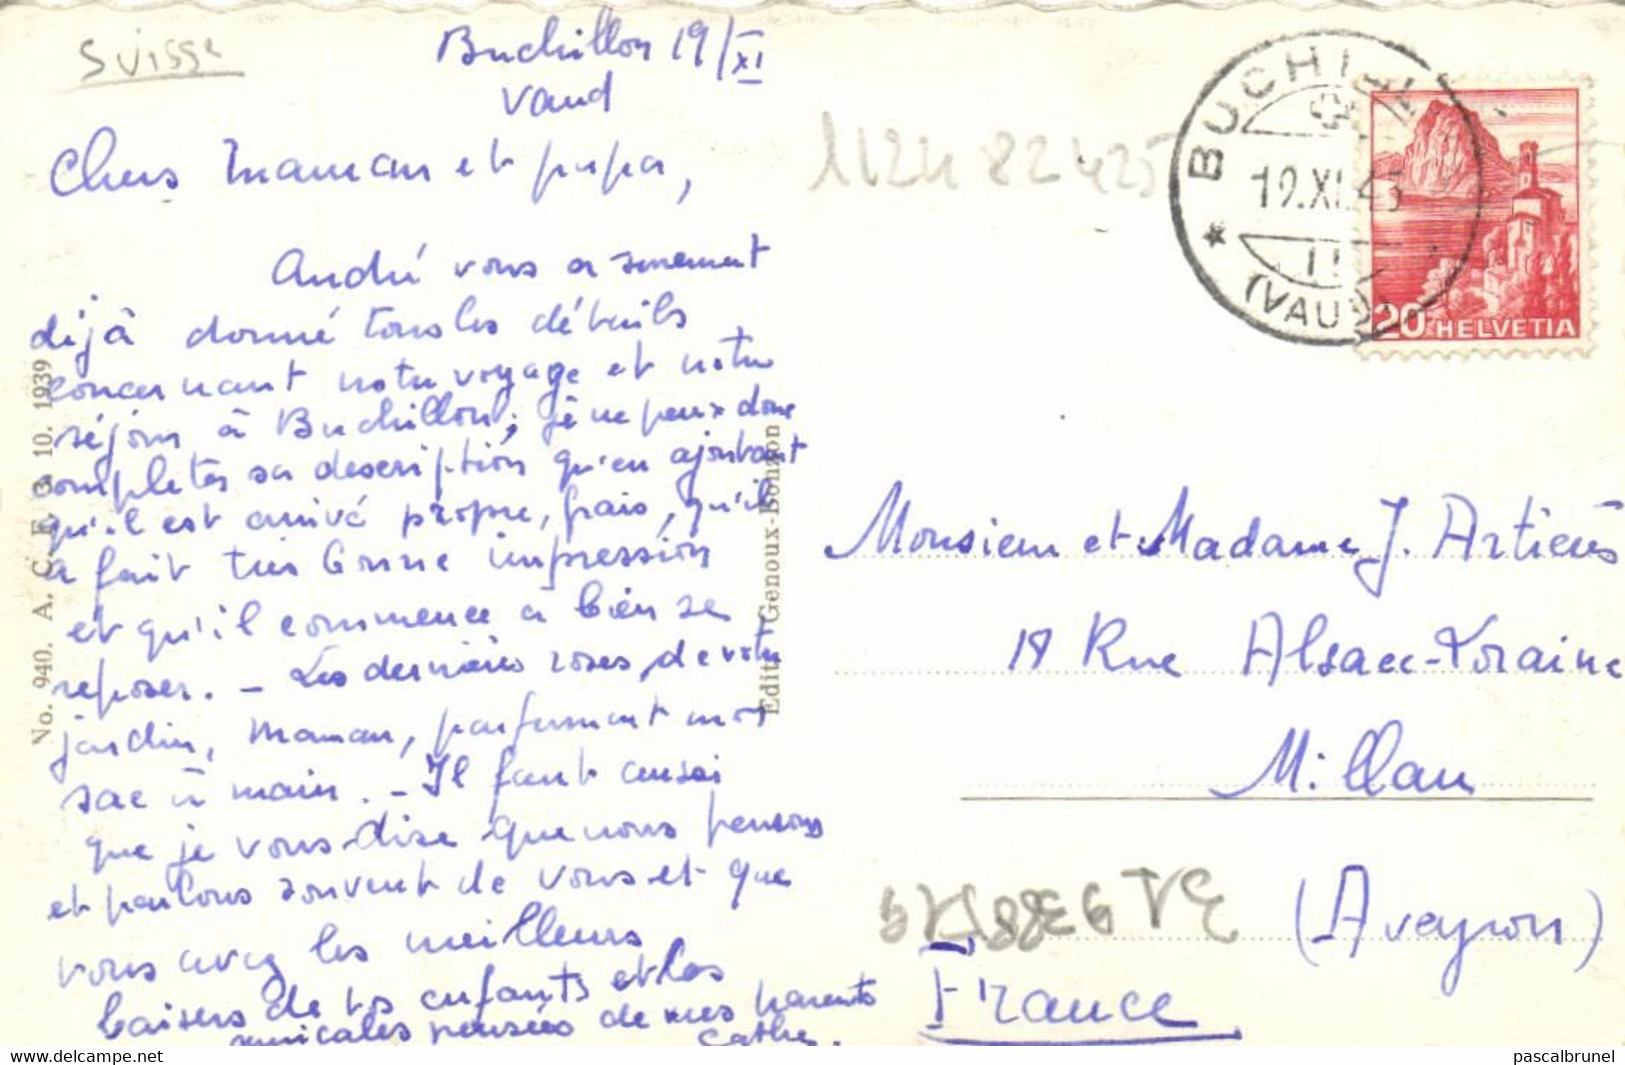 Suisse
Buchillon 19/XI
Vaud
Chers Maman et papa,
André vous a surement
déjà donné tous les détails
concernant notre voyage et notre
séjour à Buchillon; je ne peux donc
compléter sa description qu'en ajoutant
qu'il est arrivé propre, frais, qu'il
a fait très bonne impression
et qu'il commence à bien se
reposer. - Les dernières roses de votre
jardin, Maman, parfument mon
sac à main. - Il faut aussi
que je vous dise que nous pensons
et parlons souvent de vous et que
vous avez les meilleurs
baisers de vos enfants et les
amicales pensées de mes parents
Cathy.
No. 940. A. C. F. 3. 10. 1939
Edit. Genoux-Bonzon
BUCHILLON
19.XI.45
(VAUD)
20 HELVETIA
Monsieur et Madame J. Artières
18 Rue Alsace-Loraine
Millau
(Aveyron)
France
https://www.delcampe.net
pascalbrunel